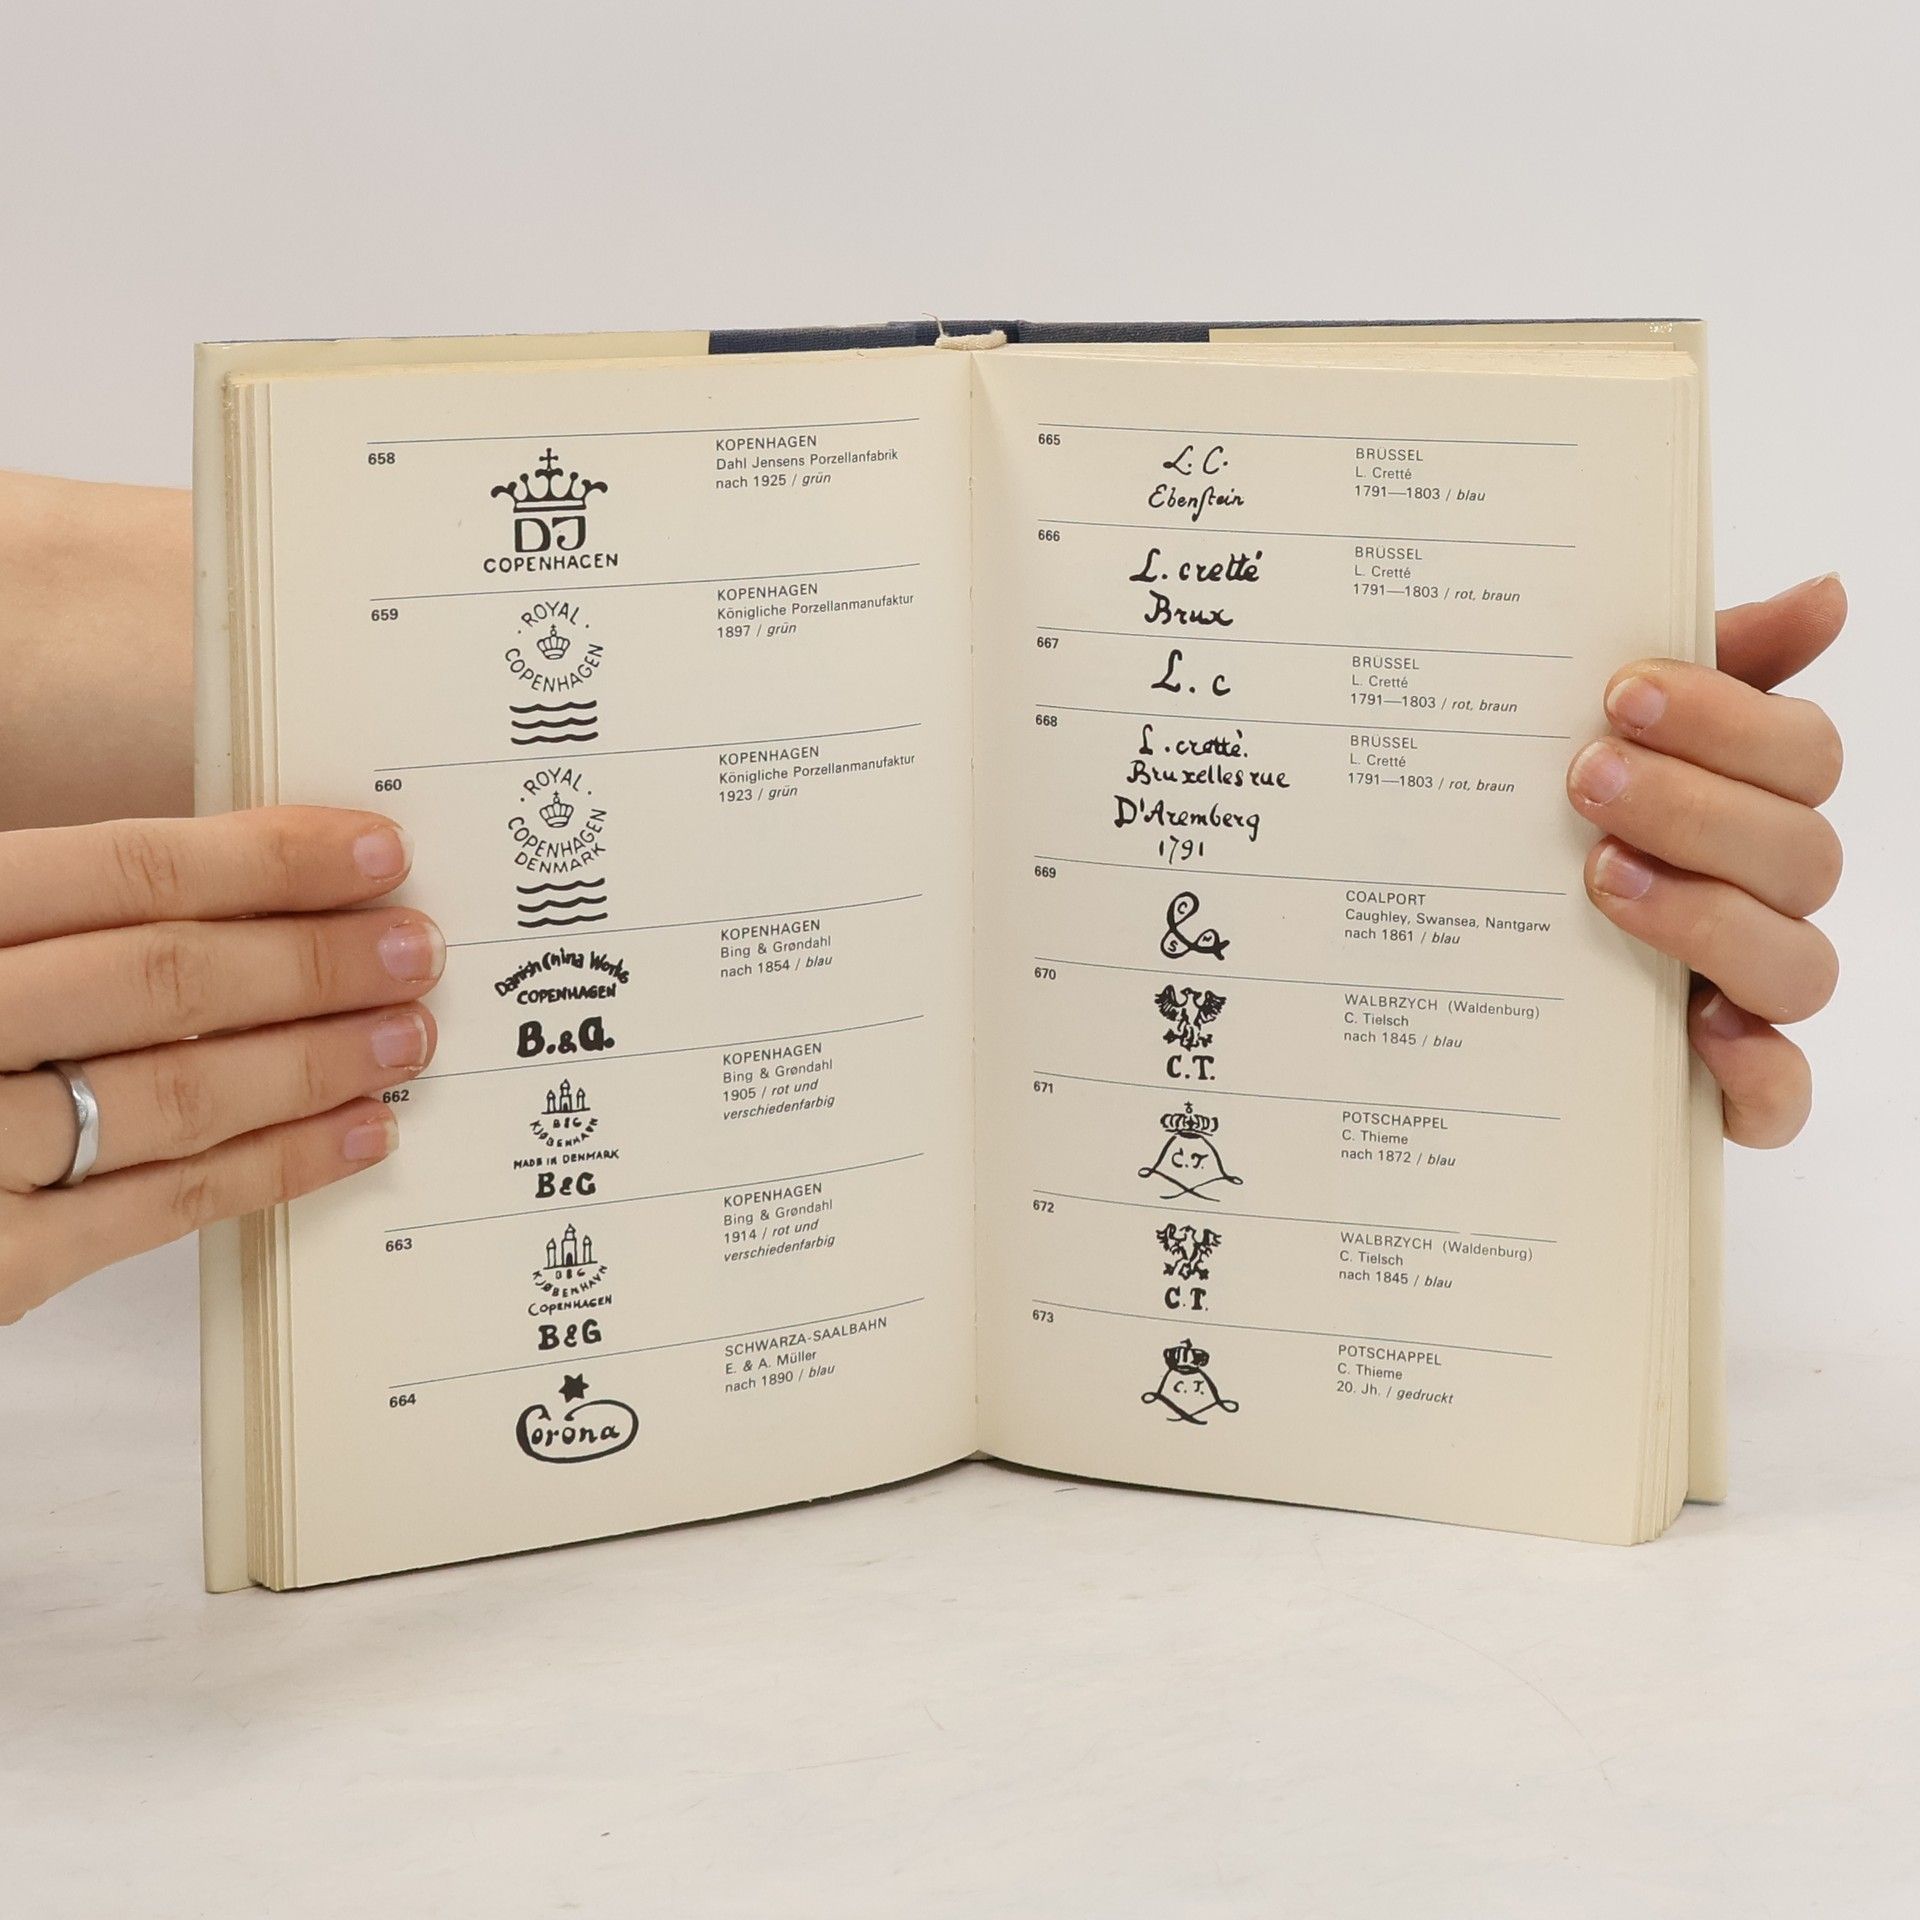 658
DJ
COPENHAGEN
KOPENHAGEN
Dahl Jensens Porzellanfabrik
nach 1925 / grün
659
· ROYAL ·
COPENHAGEN
KOPENHAGEN
Königliche Porzellanmanufaktur
1897 / grün
660
· ROYAL ·
COPENHAGEN
DENMARK
KOPENHAGEN
Königliche Porzellanmanufaktur
1923 / grün
Danish China Works
COPENHAGEN
B.&G.
KOPENHAGEN
Bing & Grøndahl
nach 1854 / blau
662
B&G
KJØBENHAVN
MADE IN DENMARK
B&G
KOPENHAGEN
Bing & Grøndahl
1905 / rot und
verschiedenfarbig
663
KJØBENHAVN
COPENHAGEN
B&G
KOPENHAGEN
Bing & Grøndahl
1914 / rot und
verschiedenfarbig
664
Corona
SCHWARZA-SAALBAHN
E. & A. Müller
nach 1890 / blau
665
L. C.
Ebenſtein
BRÜSSEL
L. Cretté
1791—1803 / blau
666
L. cretté
Brux
BRÜSSEL
L. Cretté
1791—1803 / rot, braun
667
L. c
BRÜSSEL
L. Cretté
1791—1803 / rot, braun
668
L. cretté.
Bruxelles rue
D'Aremberg
1791
BRÜSSEL
L. Cretté
1791—1803 / rot, braun
669
C
S N
COALPORT
Caughley, Swansea, Nantgarw
nach 1861 / blau
670
C.T.
WALBRZYCH (Waldenburg)
C. Tielsch
nach 1845 / blau
671
C.T.
POTSCHAPPEL
C. Thieme
nach 1872 / blau
672
C.T.
WALBRZYCH (Waldenburg)
C. Tielsch
nach 1845 / blau
673
C. T.
POTSCHAPPEL
C. Thieme
20. Jh. / gedruckt